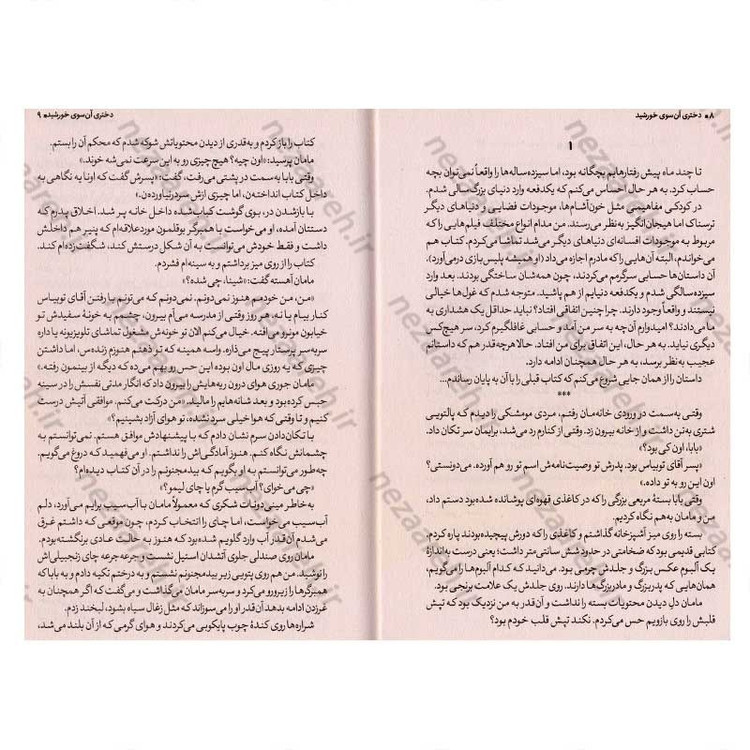 ۸ ● دختری آن‌سوی خورشید
۱
تا چند ماه پیش رفتارهایم بچگانه بود، اما سیزده‌ساله‌ها را واقعاً نمی‌توان بچه
حساب کرد. به هر حال احساس می‌کنم که یکدفعه وارد دنیای بزرگ‌سالی شدم.
در کودکی مفاهیمی مثل خون‌آشام‌ها، موجودات فضایی و دنیاهای دیگر
ترسناک اما هیجان‌انگیز به‌نظر می‌رسند. من مدام انواع مختلف فیلم‌هایی را که
مربوط به موجودات افسانه‌ای دنیاهای دیگر می‌شد تماشا می‌کردم. کتاب هم
می‌خواندم، البته آن‌هایی را که مادرم اجازه می‌داد (او همیشه پلیس‌بازی درمی‌آورد).
آن داستان‌ها حسابی سرگرمم می‌کردند، چون همه‌شان ساختگی بودند. بعد وارد
سیزده‌سالگی شدم و یکدفعه دنیایم از هم پاشید. متوجه شدم که غول‌ها خیالی
نیستند و واقعاً وجود دارند. چرا چنین اتفاقی افتاد؟ نباید حداقل یک هشداری به
ما می‌دادند؟ امیدوارم آن‌چه به سر من آمد و حسابی غافلگیرم کرد، سر هیچ‌کس
دیگری نیاید. به هر حال، این اتفاق برای من افتاد. حالا هرچه‌قدر هم که داستانم
عجیب به‌نظر برسد، به هر حال همچنان ادامه دارد.
داستان را از همان جایی شروع می‌کنم که کتاب قبلی را با آن به پایان رساندم...
***
وقتی به‌سمت در ورودی خانه‌مان رفتم، مردی مومشکی را دیدم که پالتویی
شتری به‌تن داشت و از خانه بیرون زد. وقتی از کنارم رد می‌شد، برایمان سر تکان داد.
«بابا، اون کی بود؟»
«پسر آقای توبیاس بود. پدرش تو وصیت‌نامه‌ش اسم تو رو هم آورده. می‌دونستی؟
اون این رو به تو داده.»
وقتی بابا بستهٔ مربعی بزرگی را که در کاغذی قهوه‌ای پوشانده شده‌بود دستم داد،
من و مامان به‌هم نگاه کردیم.
بسته را روی میز آشپزخانه گذاشتم و کاغذی را که دورش پیچیده‌بودند پاره کردم.
کتابی قدیمی بود که ضخامتی در حدود شش سانتی‌متر داشت؛ یعنی درست به‌اندازهٔ
یک آلبوم عکس بزرگ و جلدش چرمی بود. می‌دانید که کدام آلبوم‌ها را می‌گویم،
همان‌هایی که پدربزرگ و مادربزرگ‌ها دارند. روی جلدش یک علامت برنجی بود.
مامان دل دیدن محتویات بسته را نداشت و آن‌قدر به من نزدیک بود که تپش
قلبش را روی بازویم حس می‌کردم. نکند تپش قلب خودم بود؟
دختری آن‌سوی خورشید ● ۹
کتاب را باز کردم و به‌قدری از دیدن محتویاتش شوکه شدم که محکم آن را بستم.
مامان پرسید: «اون چیه؟ هیچ‌چیزی رو به این سرعت نمی‌شه خوند.»
وقتی بابا به‌سمت در پشتی می‌رفت، گفت: «پسرش گفت که اونا یه نگاهی به
داخل کتاب انداخته‌ن، اما چیزی ازش سر درنیاورده‌ن.»
با بازشدن در، بوی گوشت کباب‌شده داخل خانه پر شد. اخلاق پدرم که
دستتان آمده، او می‌خواست با همبرگر بوقلمون موردعلاقه‌ام که پنیر هم داخلش
داشت و فقط خودش می‌توانست به آن شکل درستش کند، شگفت‌زده‌ام کند.
کتاب را از روی میز برداشتم و به سینه‌ام فشردم.
مامان آهسته گفت: «شینا، چی شده؟»
«من، من خودمم هنوز نمی‌دونم. نمی‌دونم که می‌تونم با رفتن آقای توبیاس
کنار بیام یا نه. هر روز وقتی از مدرسه می‌آم بیرون، چشمم به خونهٔ سفیدش تو
خیابون مونرو می‌افته. خیال می‌کنم الان تو خونه‌ش مشغول تماشای تلویزیونه یا داره
سربه‌سر پرستار پیج می‌ذاره. واسه همینه که تو ذهنم هنوزم زنده‌س، اما داشتن
چیزی که یه روزی مال اون بوده این حس رو بهم می‌ده که دیگه از بینمون رفته.»
مامان جوری هوای درون ریه‌هایش را بیرون داد که انگار مدتی نفسش را در سینه
حبس کرده بود و بعد شانه‌هایم را مالید. «من درکت می‌کنم. موافقی آتیش درست
کنیم و تا وقتی که هوا خیلی سرد نشده، تو هوای آزاد بشینیم؟»
با تکان‌دادن سرم نشان دادم که با پیشنهادش موافق هستم. نمی‌توانستم به
چشمانش نگاه کنم. هنوز آمادگی‌اش را نداشتم. او می‌فهمید که دروغ می‌گویم.
چه‌طور می‌توانستم به او بگویم که بیدمجنونم را در آن کتاب دیده‌ام؟
«چی می‌خوای؟ آب‌سیب گرم یا چای لیمو؟»
به‌خاطر مینی‌دونات شکری که معمولاً مامان با آب‌سیب برایم می‌آورد، دلم
آب‌سیب می‌خواست، اما چای را انتخاب کردم، چون موقعی که داشتم غرق
می‌شدم آن‌قدر آب وارد گلویم شده‌بود که هنوز به حالت عادی برنگشته‌بودم.
مامان روی صندلی جلوی آتشدان استیل نشست و جرعه جرعه چای زنجبیلی‌اش
را نوشید. من هم روی پتویی زیر بیدمجنونم نشستم و به درختم تکیه دادم و به بابا که
همبرگرها را زیرورو می‌کرد و سربه‌سر مامان می‌گذاشت و می‌گفت که اگر همچنان به
غرزدن ادامه بدهد آن‌قدر او را می‌سوزاند که مثل زغال سیاه بشود، لبخند زدم.
شراره‌ها روی کندهٔ چوب پایکوبی می‌کردند و هوای گرمی که از آن بلند می‌شد،
nezaareh.ir